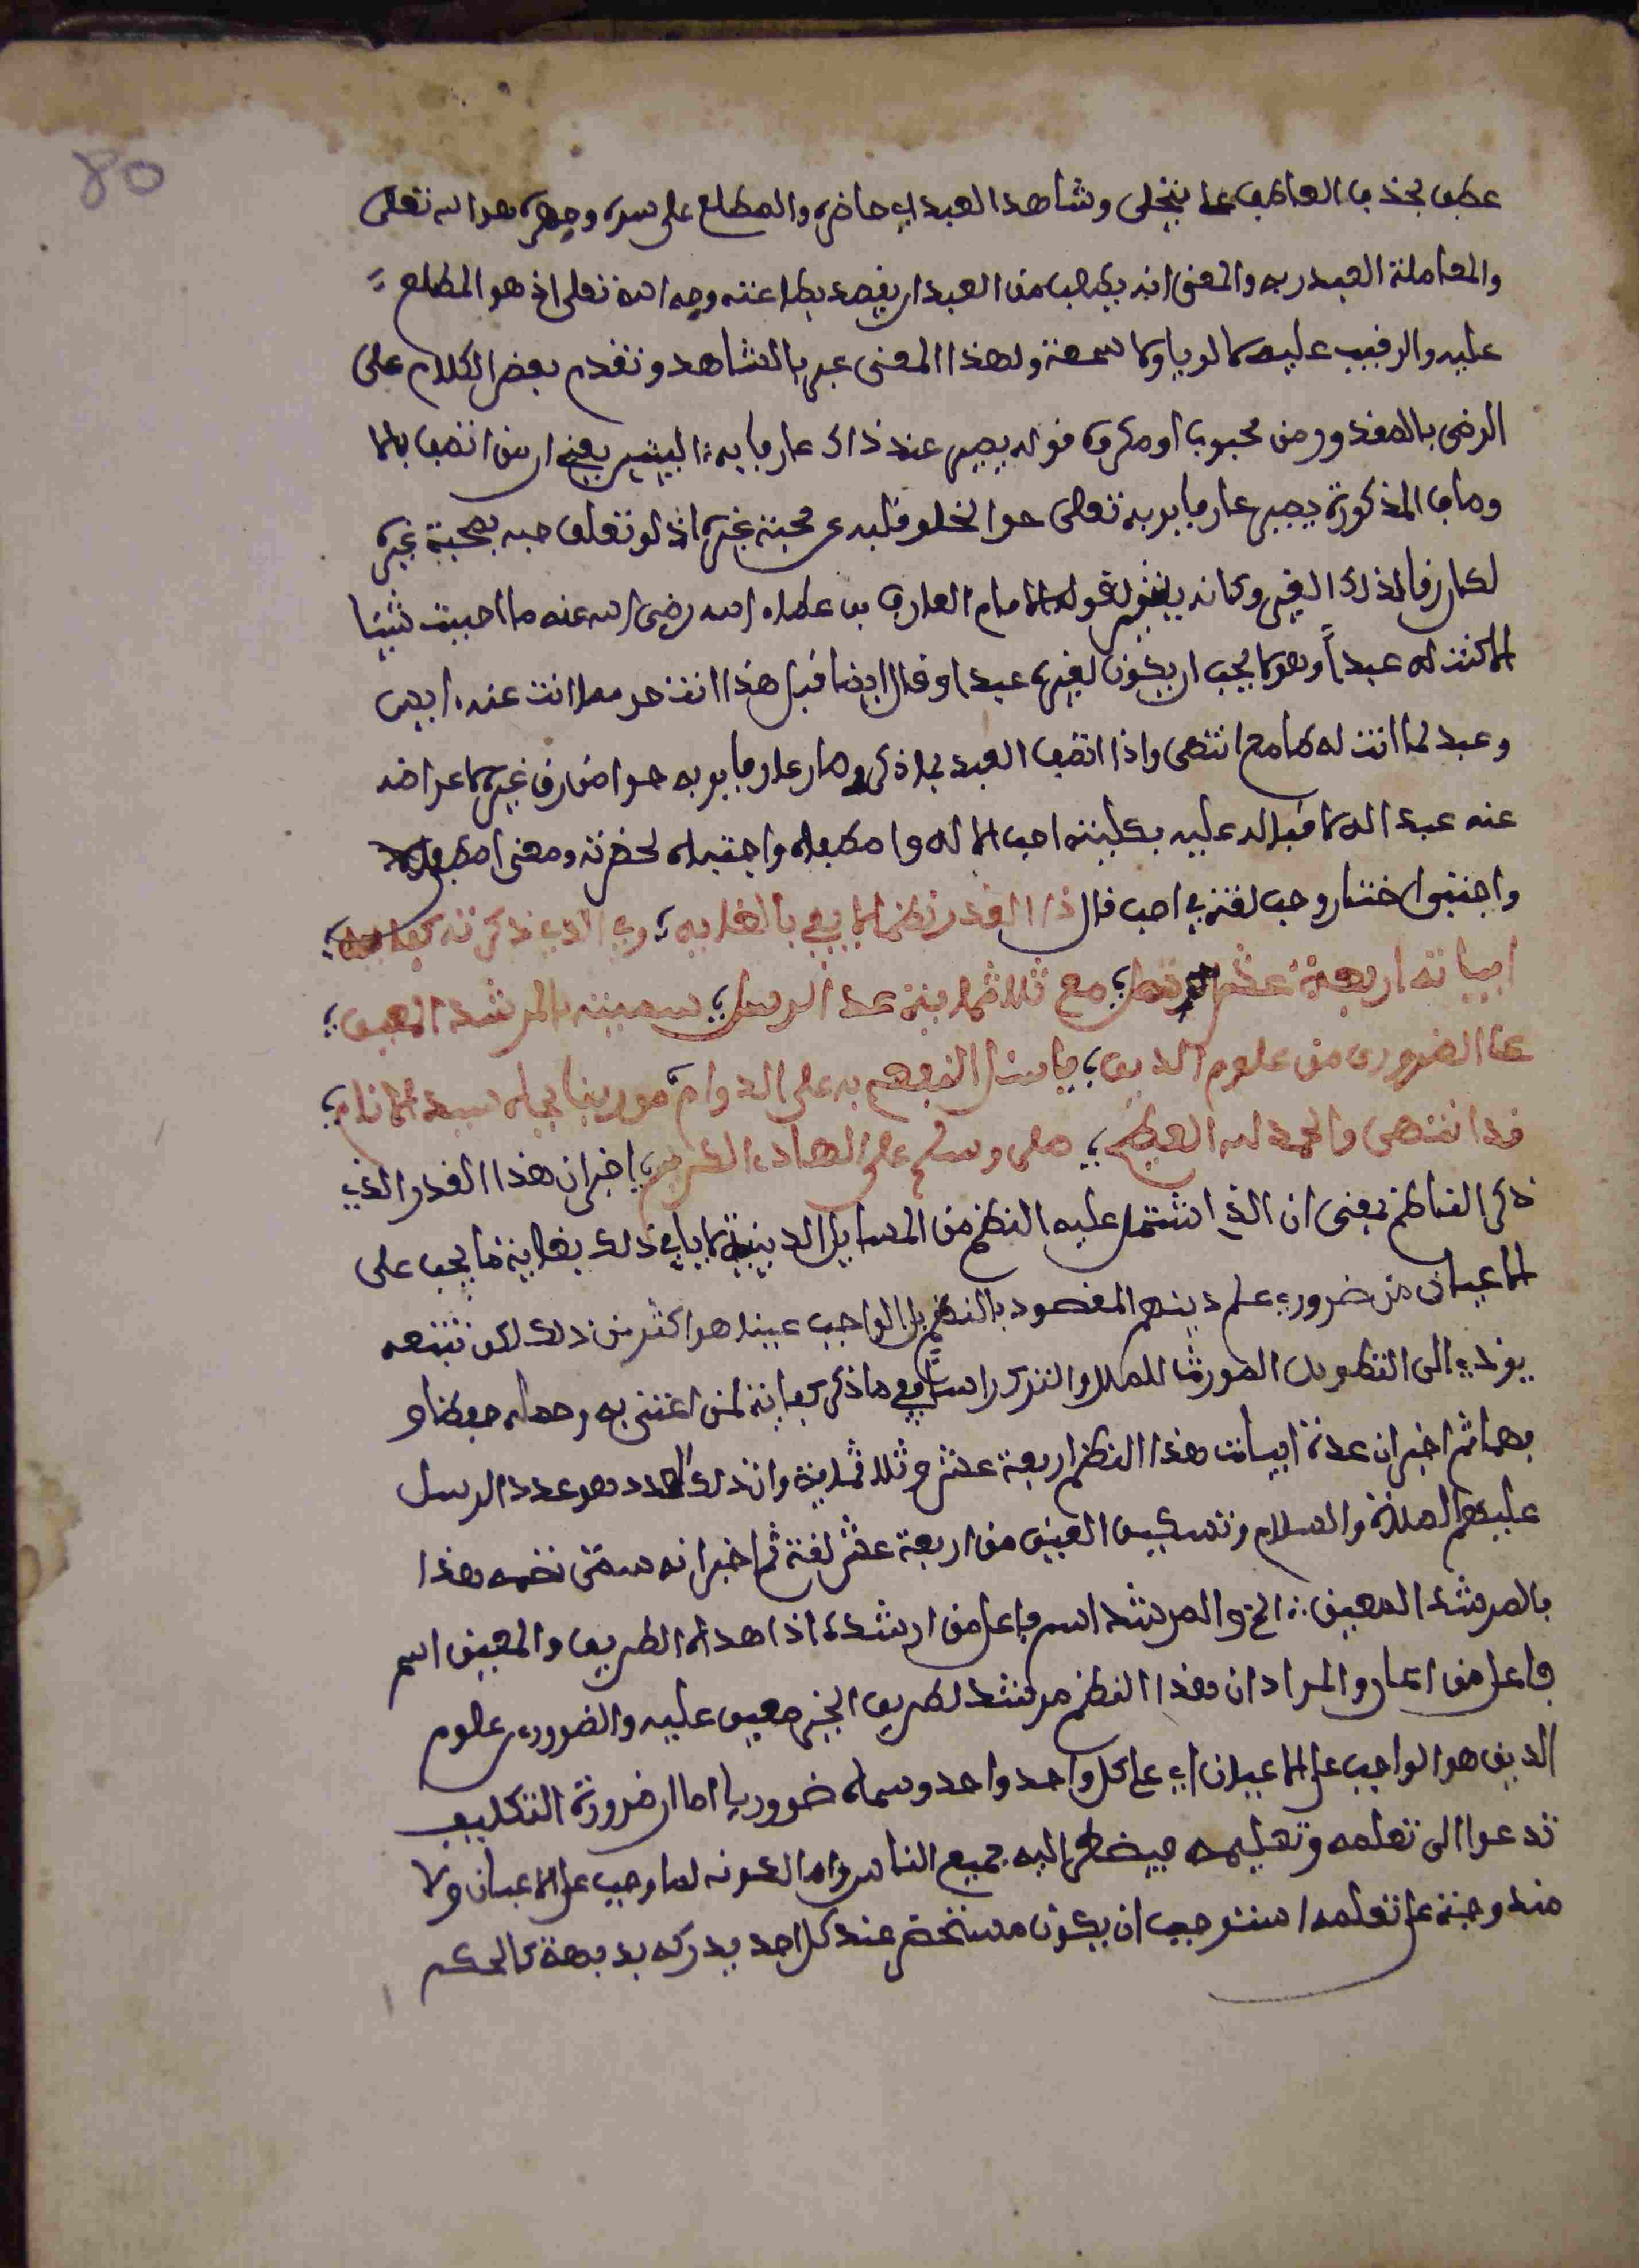 80
عطف بحذف العاطف على يتحلى وشاهد العبد اي حاضره والمطلع على سره وجهره هو الله تعلى
والمعاملة العبد ربه والمعنى انه يطلب من العبد ان يقصد بطاعته وجه الله تعلى اذ هو المطلع
عليه والرقيب عليه لا لرياء ولا سمعة ولهذا المعنى عبر بالشاهد وتقدم بعض الكلام على
الرضى بالمقدور من محبوب او مكروه قوله يصير عند ذاك عارفا به البيتين يعني ان من اتصف بالا
وصاف المذكورة يصير عارفا بربه تعلى حرا لخلو قلبه عن محبة غيره اذ لو تعلق حبه بمحبة غيره
لكان رقا لذلك الغير وكانه يشير لقول الامام العارف بن عطاء الله رضي الله عنه ما احببت شيئا
الا كنت له عبدا وهو لا يحب ان تكون لغيره عبدا وقال ايضا قبل هذا انت حر مما انت عنه ايس
وعبد لما انت له طامع انتهى واذا اتصف العبد بما ذكر وصار عارفا بربه حرا من رق غيره لاعراضه
عنه عبدا له لاقباله عليه بكليته احبه الاله واصطفاه واجتباه لحضرته ومعنى اصطفى
واجتبى اختار وحب لغة في احب قال ذا القدر نظما لا يفي بالغايه وفي الذي ذكرته كفايه
ابياته اربعة عشر تصل مع ثلاثماية عد الرسل سميته بالمرشد المعين
على الضروري من علوم الدين فاسئل النفع به على الدوام من ربنا بجاه سيد الانام
قد انتهى والحمد لله العظيم صلى وسلم على الهادي الكريم اخبر ان هذا القدر الذي
ذكر الناظم يعني ان الذي اشتمل عليه النظم من المسايل الدينية لا يفي ذلك بغاية ما يجب على
الاعيان من ضروري علم دينهم المقصود بالنظم بل الواجب عينا هو اكثر من ذلك لكن تتبعه
يؤدي الى التطويل المورث للملل والترك راسا وفي ما ذكر كفاية لمن اعتنى به وحصله حفظا و
فهما ثم اخبر ان عدة ابيات هذا النظم اربعة عشر وثلاثماية وان ذلك العدد هو عدد الرسل
عليهم الصلاة والسلام وتسكين العين من اربعة عشر لغة ثم اخبر انه سمى نظمه هذا
بالمرشد المعين الخ والمرشد اسم فاعل من ارشده اذا هداه الطريق والمعين اسم
فاعل من اعان والمراد ان هذا النظم مرشد لطريق الخير معين عليه والضروري من علوم
الدين هو الواجب على الاعيان اي على كل واحد واحد وسماه ضروريا اما لان ضرورة التكليف
تدعوا الى تعلمه وتعليمه فيضطر اليه جميع الناس واما لكونه لما وجب على الاعيان ولا
مندوحة على تعلمه استوجب ان يكون مستحضرا عند كل احد يدركه بديهة كالحكم